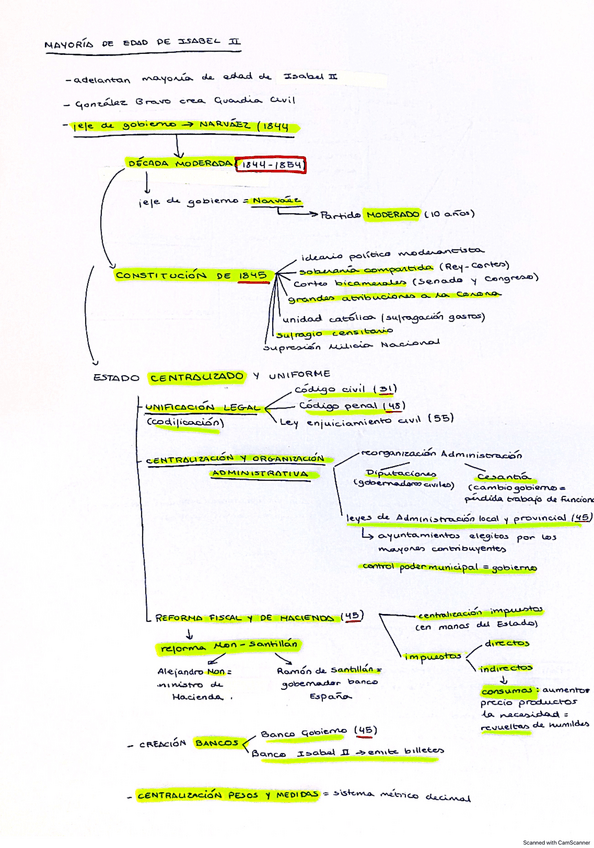 MAYORÍA DE EDAD DE ISABEL II
- adelantan mayoría de edad de Isabel II
- González Bravo crea Guardia Civil
- jefe de gobierno → NARVÁEZ (1844
DÉCADA MODERADA 1844-1854
jefe de gobierno = Narváez
Partido MODERADO (10 años)
CONSTITUCIÓN DE 1845
ideario político moderantista
soberanía compartida (Rey-Cortes)
Cortes bicamerales (Senado y Congreso)
grandes atribuciones a la Corona
unidad católica (sufragación gastos)
sufragio censitario
supresión Milicia Nacional
ESTADO CENTRALIZADO Y UNIFORME
- UNIFICACIÓN LEGAL
(codificación)
Código civil (51)
Código penal (48)
Ley enjuiciamiento civil (55)
- CENTRALIZACIÓN Y ORGANIZACIÓN
ADMINISTRATIVA
reorganización Administración
Diputaciones
(gobernadores civiles)
Cesantía
(cambio gobierno =
pérdida trabajo de funciona
leyes de Administración local y provincial (45)
↳ ayuntamientos elegidos por los
mayores contribuyentes
control poder municipal = gobierno
REFORMA FISCAL Y DE HACIENDA (45)
reforma Mon-Santillán
Alejandro Mon =
ministro de
Hacienda.
Ramón de Santillán =
gobernador banco
España
centralización impuestos
(en manos del Estado)
impuestos
directos
indirectos
consumos: aumentos
precio productos
1a necesidad =
revueltas de humildes
- CREACIÓN BANCOS
Banco Gobierno (45)
Banco Isabel II → emite billetes
- CENTRALIZACIÓN PESOS Y MEDIDAS = sistema métrico decimal
Scanned with CamScanner